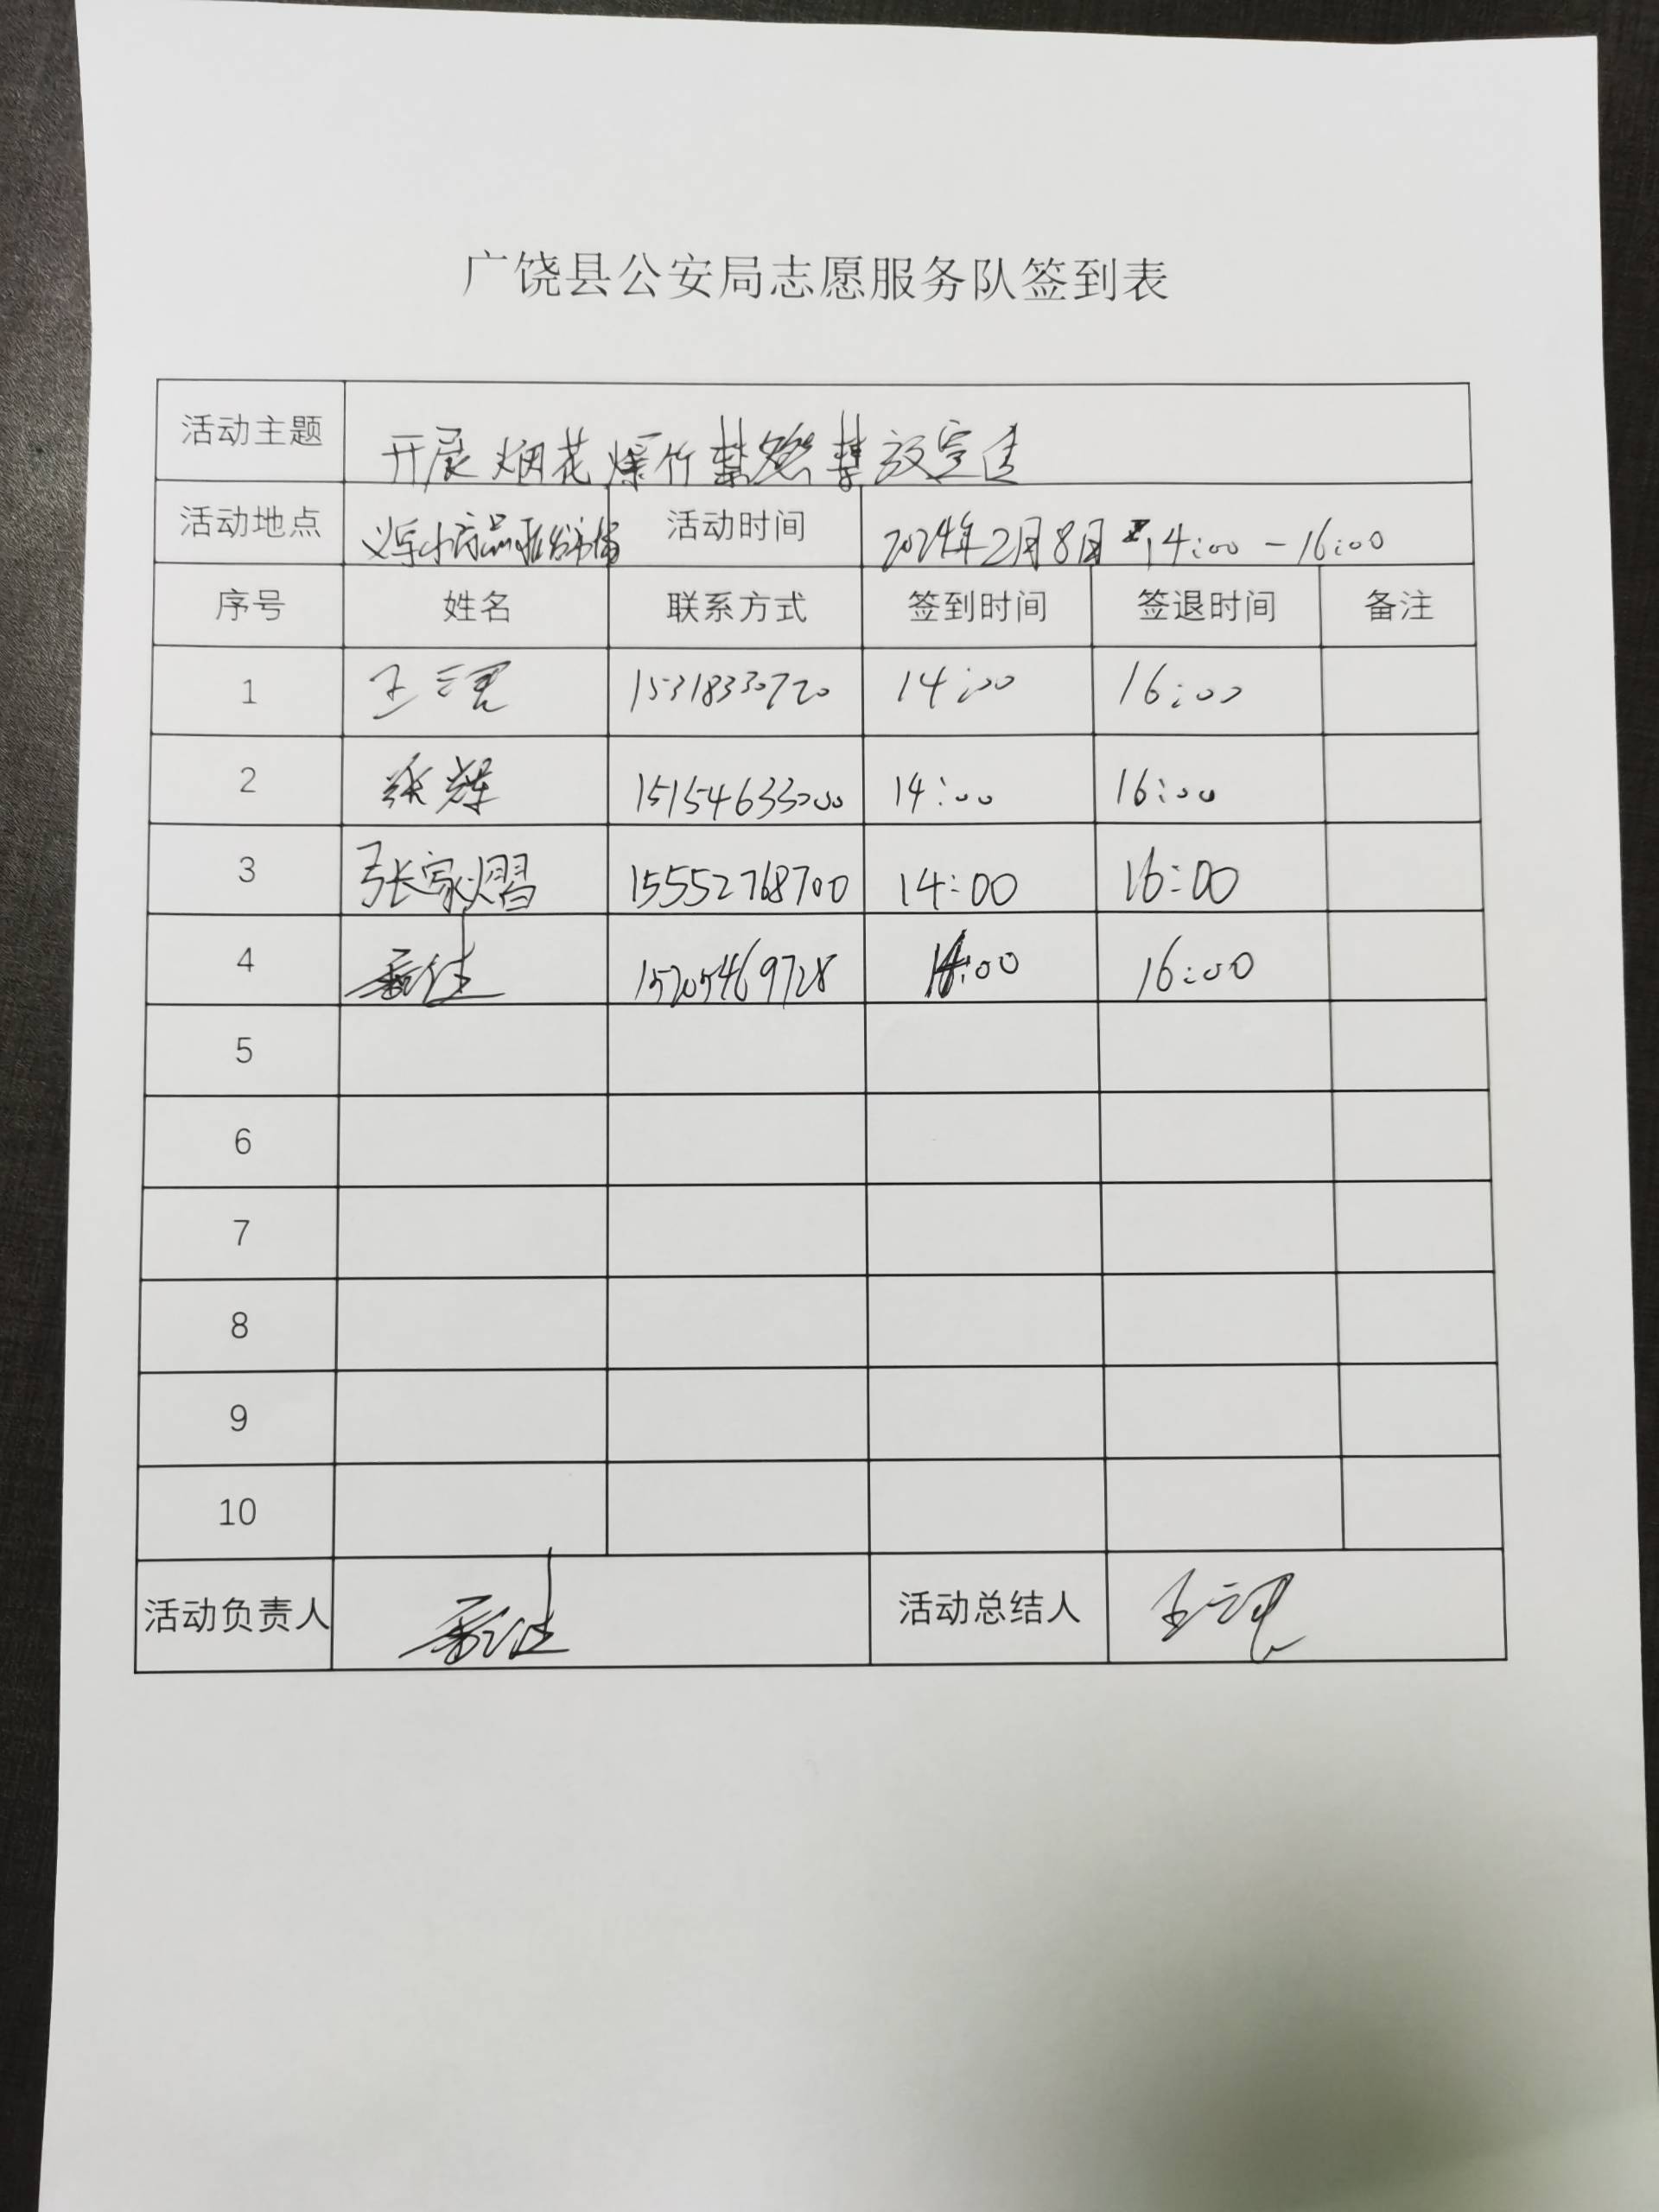 广饶县公安局志愿服务队签到表
活动主题 开展烟花爆竹禁燃禁放宣传
活动地点 义乌小商品批发市场 活动时间 2024年2月8日 14:00-16:00
序号 姓名 联系方式 签到时间 签退时间 备注
1 15318330720 14:00 16:00
2 15154633000 14:00 16:00
3 张家熠 15552768700 14:00 16:00
4 15205469728 14:00 16:00
5
6
7
8
9
10
活动负责人 活动总结人